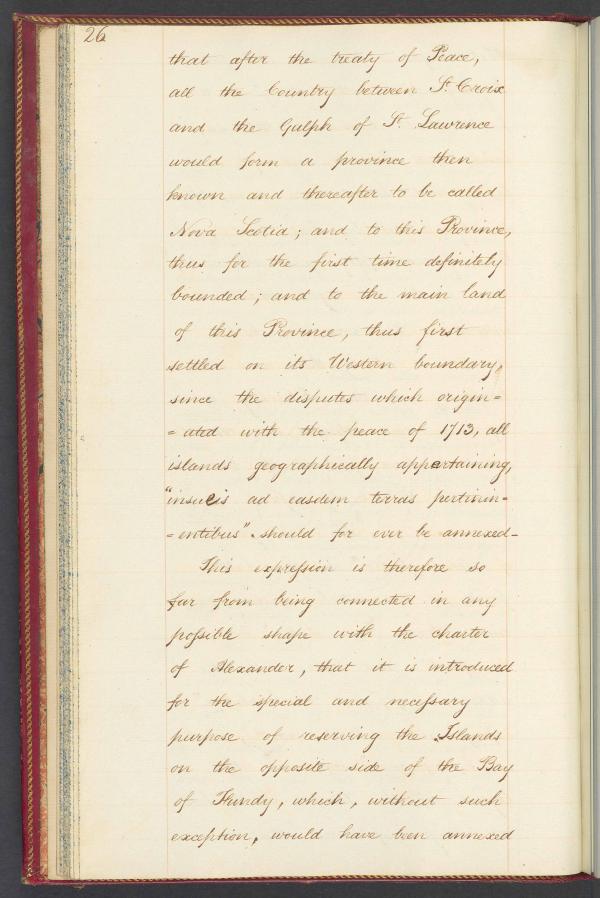 26
that after the treaty of Peace,
all the Country between St. Croix
and the Gulph of St. Lawrence
would form a province then
known and thereafter to be called
Nova Scotia; and to this Province,
thus for the first time definitely
bounded; and to the main land
of this Province, thus first
settled on its Western boundary,
since the disputes which origin=
=ated with the peace of 1713, all
islands geographically appertaining,
"insulis ad easdem terras pertinin-
=entibus" should for ever be annexed-
This expression is therefore so
far from being connected in any
possible shape with the charter
of Alexander, that it is introduced
for the special and necessary
purpose of reserving the Islands
on the opposite side of the Bay
of Fundy, which, without such
exception, would have been annexed